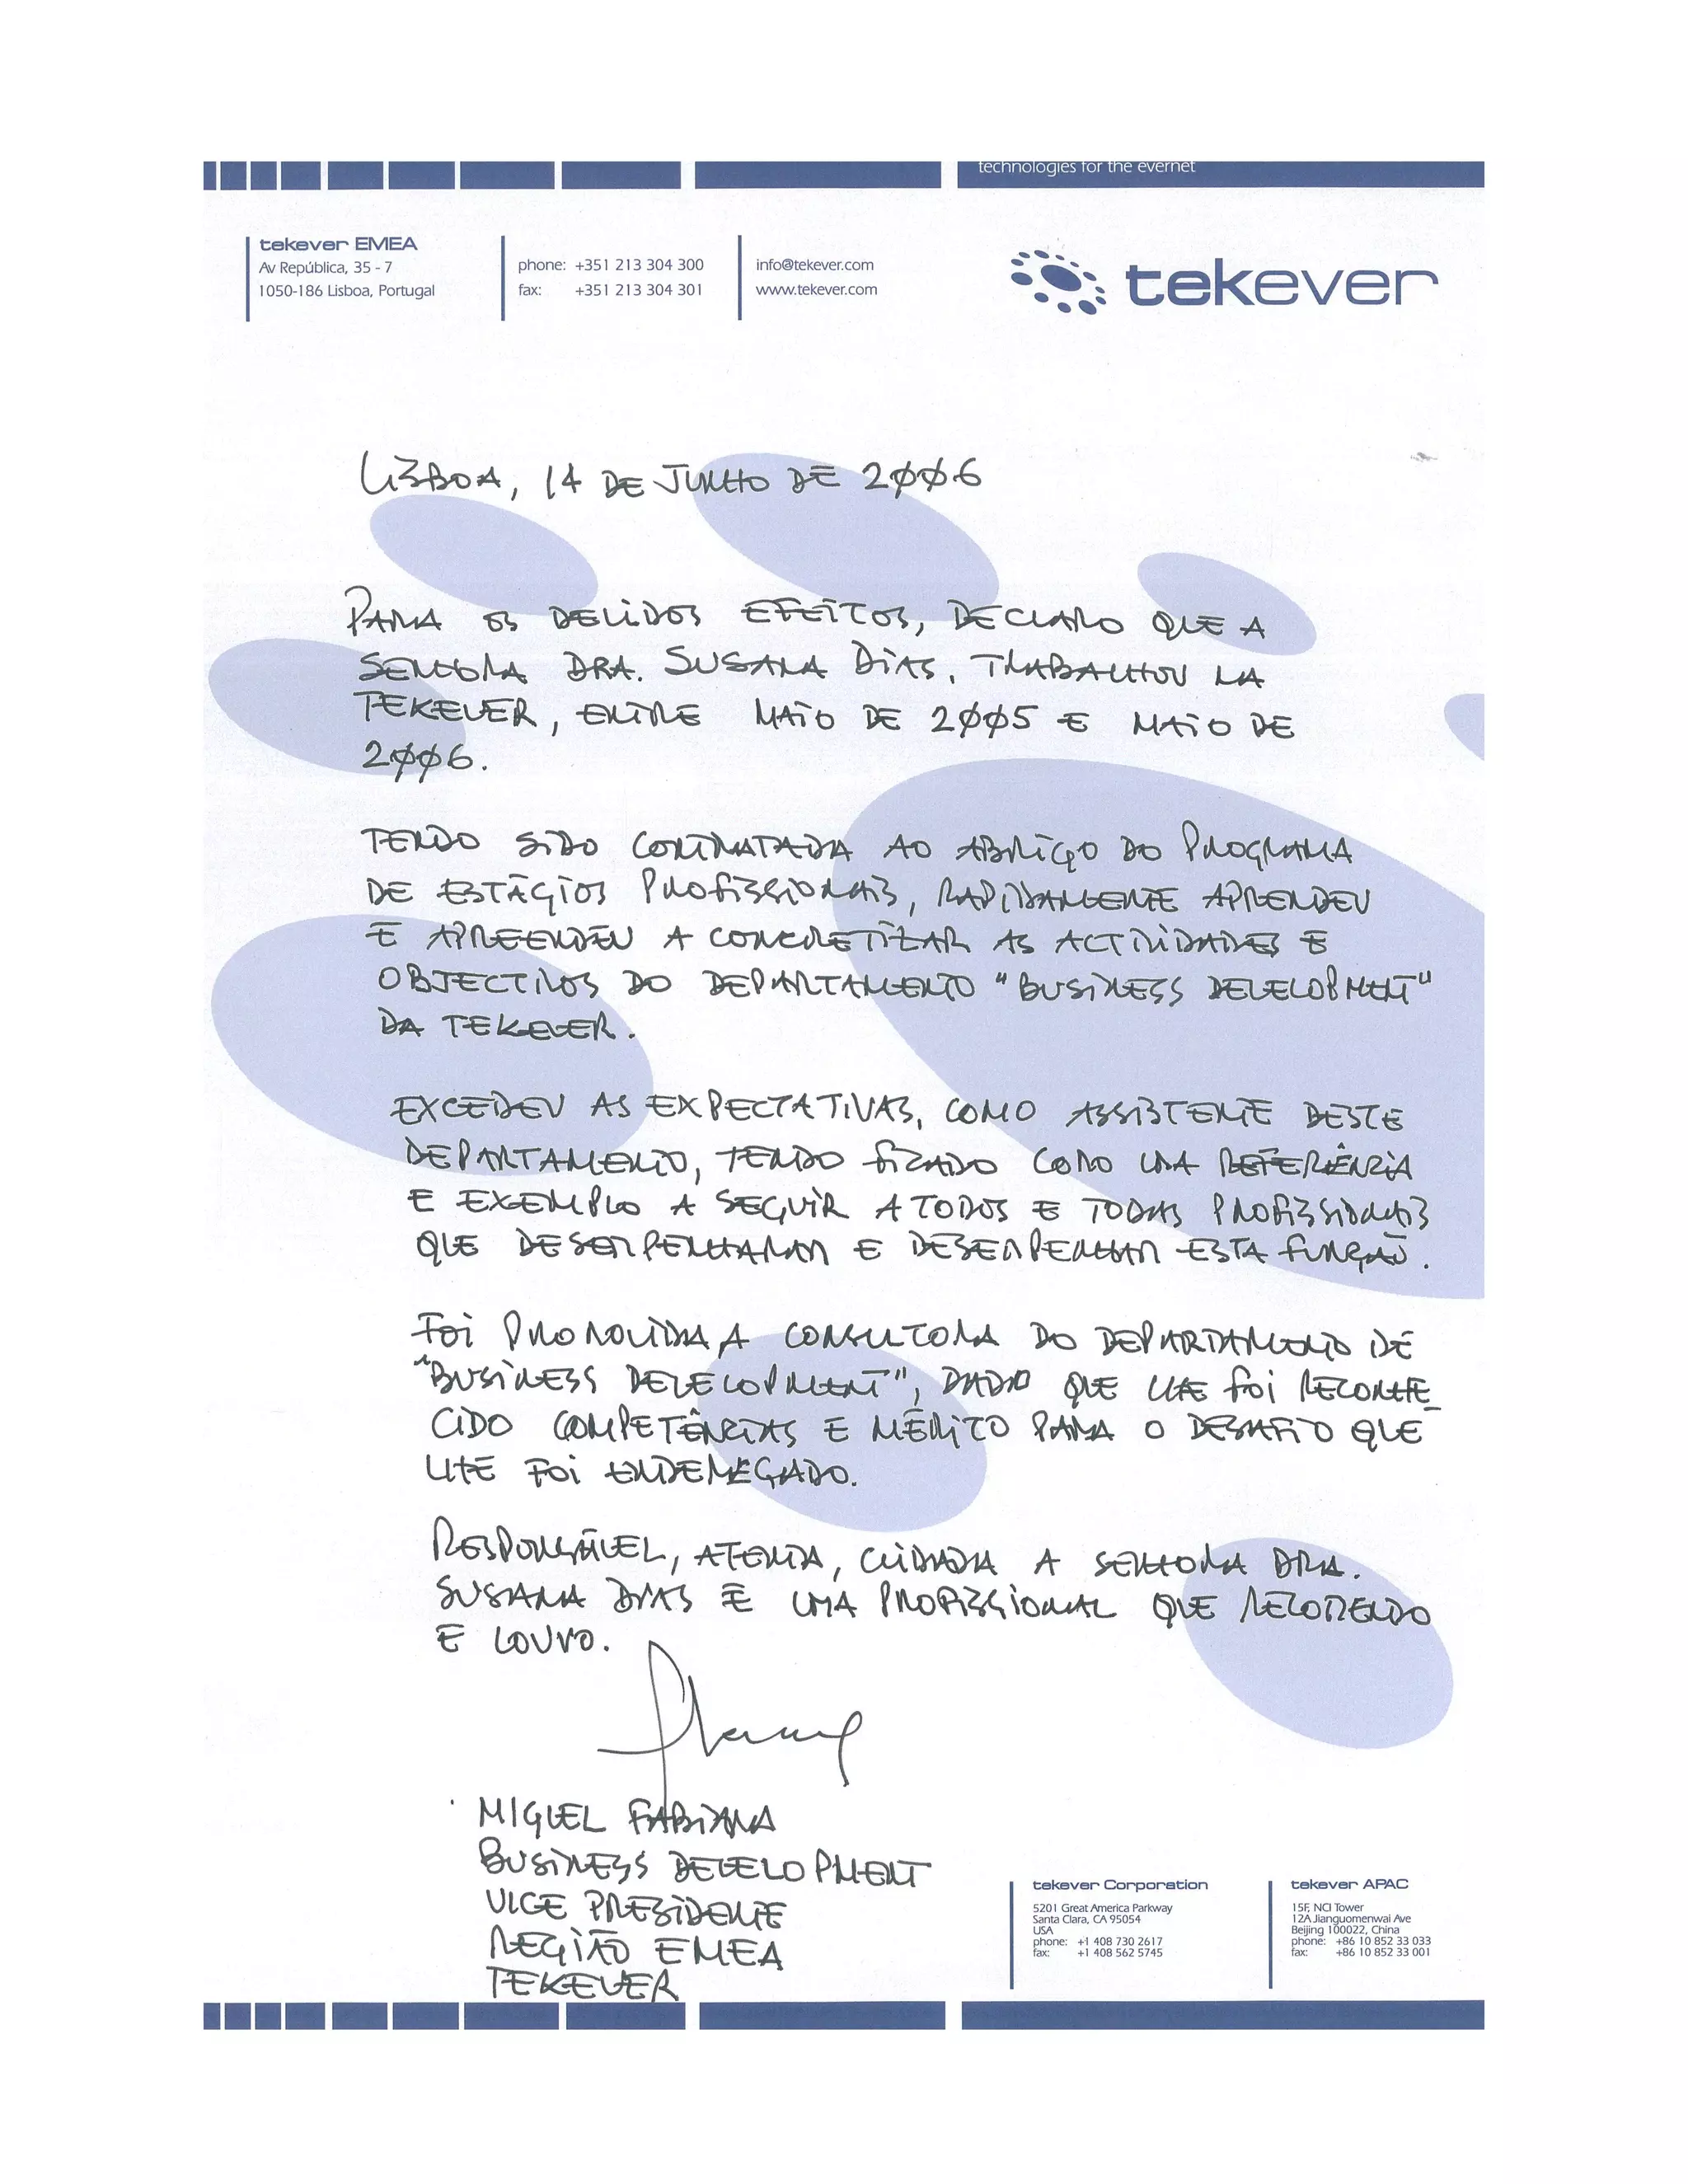 technologies for the evernet
tekever EMEA
Av República, 35 - 7
1050-186 Lisboa, Portugal
phone: +351 213 304 300
fax: +351 213 304 301
info@tekever.com
www.tekever.com
tekever
LISBOA, 14 DE JUNHO DE 2006
PARA OS DEVIDOS EFEITOS, DECLARO QUE A
SENHORA DRA. SUSANA DIAS, TRABALHOU NA
TEKEVER, ENTRE MAIO DE 2005 E MAIO DE
2006.
TENDO SIDO CONTRATADA AO ABRIGO DO PROGRAMA
DE ESTÁGIOS PROFISSIONAIS, RAPIDAMENTE APRENDEU
E APREENDEU A CONCRETIZAR AS ACTIVIDADES E
OBJECTIVOS DO DEPARTAMENTO "BUSINESS DEVELOPMENT"
DA TEKEVER.
EXCEDEU AS EXPECTATIVAS, COMO ASSISTENTE DESTE
DEPARTAMENTO, TENDO FICADO COMO UMA REFERÊNCIA
E EXEMPLO A SEGUIR A TODOS E TODAS PROFISSIONAIS
QUE DESEMPENHARAM E DESEMPENHAM ESTA FUNÇÃO.
FOI PROMOVIDA A CONSULTORA DO DEPARTAMENTO DE
"BUSINESS DEVELOPMENT", DADO QUE LHE FOI RECONHE_
CIDO COMPETÊNCIAS E MÉRITO PARA O DESAFIO QUE
LHE FOI ENDEREÇADO.
RESPONSÁVEL, ATENTA, CUIDADA A SENHORA DRA.
SUSANA DIAS É UMA PROFISSIONAL QUE RECOMENDO
E LOUVO.
MIGUEL FABIANA
BUSINESS DEVELOPMENT
VICE PRESIDENTE
REGIÃO EMEA
TEKEVER
tekever Corporation
5201 Great America Parkway
Santa Clara, CA 95054
USA
phone: +1 408 730 2617
fax: +1 408 562 5745
tekever APAC
15F, NCI Tower
12A Jianguomenwai Ave
Beijing 100022, China
phone: +86 10 852 33 033
fax: +86 10 852 33 001